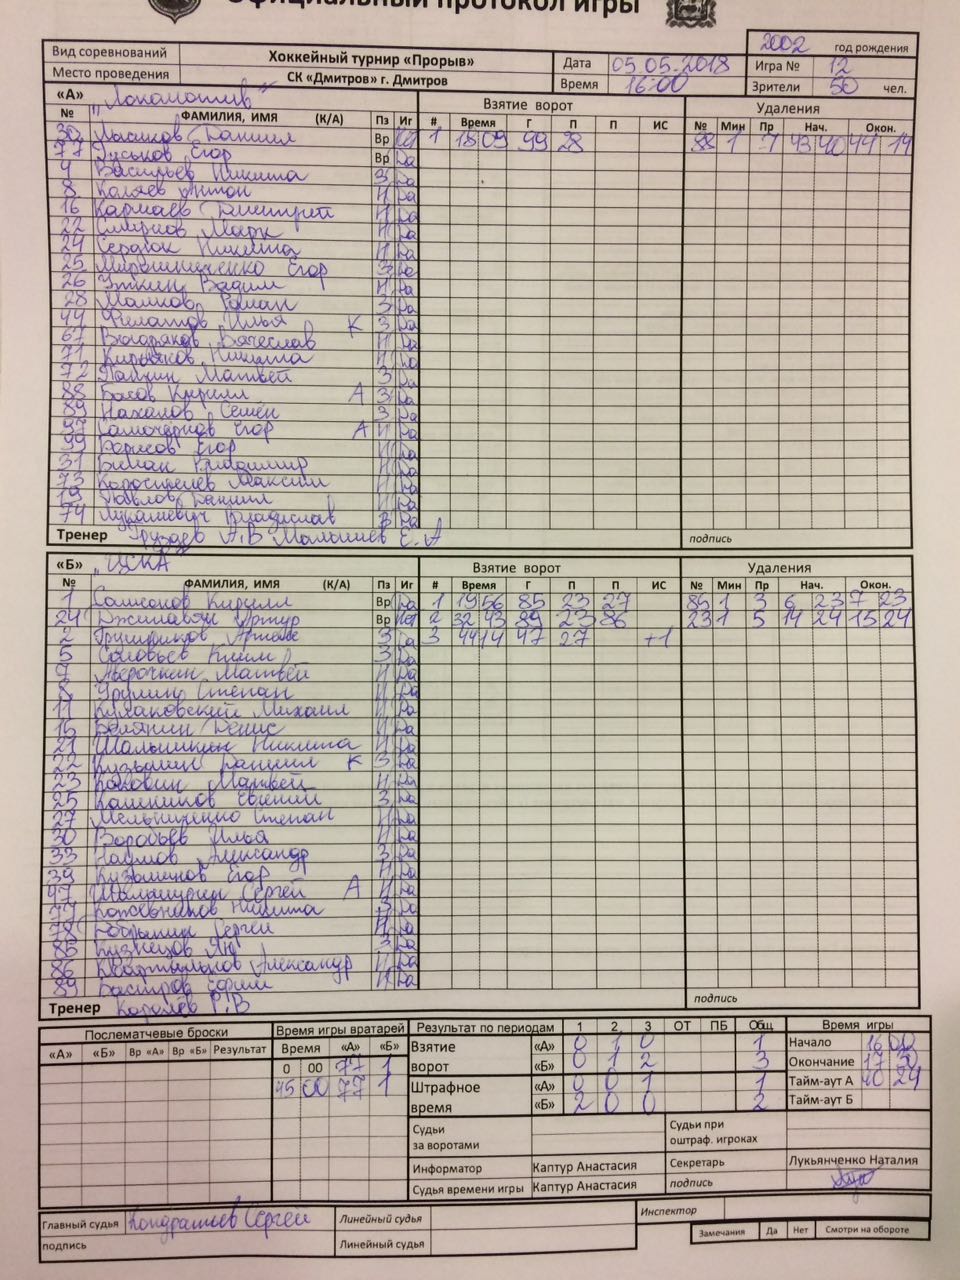 Официальный протокол игры
Вид соревнований Хоккейный турнир «Прорыв» Дата 05.05.2018 2002 год рождения
Место проведения СК «Дмитров» г. Дмитров Время 16:00 Игра № 12
Зрители 50 чел.
«А» „Локомотив" Взятие ворот Удаления
№ ФАМИЛИЯ, ИМЯ (К/А) Пз Иг # Время Г П П ИС № Мин Пр Нач. Окон.
30 Даниил Вр Нет 1 18 09 99 28 88 1 7 43 40 44 14
77 Гуськов Егор Вр Да
4 Васильев Никита З Да
8 Коляев Антон Н Да
16 Кармаев Дмитрий Н Да
22 Смирнов Марк Н Да
24 Сердюк Никита Н Да
25 Мирошниченко Егор З Да
26 Уткин Вадим Н Да
28 Малков Роман З Да
44 Филатов Илья К З Да
67 Вячеслав Н Да
71 Кирьяков Никита Н Да
72 Матвей З Да
88 Басов Кирилл А З Да
89 Нахалов Семён З Да
97 Самочернов Егор А Н Да
99 Борисов Егор Н Да
31 Билан Владимир Н Да
73 Коростелев Максим Н Да
19 Павлов Даниил Н Да
74 Лукашевич Владислав В Да
Тренер Груздев А.В Малышев Е.А подпись
«Б» „ЦСКА Взятие ворот Удаления
№ ФАМИЛИЯ, ИМЯ (К/А) Пз Иг # Время Г П П ИС № Мин Пр Нач. Окон.
1 Самсонов Кирилл Вр Да 1 19 56 85 23 27 85 1 3 6 23 7 23
24 Джилавян Артур Вр Нет 2 32 43 89 23 86 23 1 5 14 24 15 24
2 Грушников Артем З Да 3 44 14 47 27 +1
5 Соловьев Клим З Да
7 Аверочкин Матвей Н Да
8 Трулин Степан Н Да
11 Кулаковский Михаил Н Да
15 Белянин Денис Н Да
21 Шалышкин Никита Н Да
22 Кузьмин Даниил К З Да
23 Матвей Н Да
25 Калинников Евгений З Да
27 Мельниченко Степан Н Да
30 Воробьев Илья Н Да
33 Наумов Александр З Да
39 Кузьминов Егор Н Да
47 Сергей А Н Да
77 Кожевников Никита З Да
78 Сергей Н Да
85 Кузнецов Ян З Да
86 Квартальнов Александр Н Да
89 Бастров Ефим Н Да
Тренер Королёв Р.В подпись
Послематчевые броски Время игры вратарей Результат по периодам 1 2 3 ОТ ПБ Общ Время игры
«А» «Б» Вр «А» Вр «Б» Результат Время «А» «Б» Взятие ворот «А» 0 1 0 1 Начало 16 00
0 00 77 1 «Б» 0 1 2 3 Окончание 17 30
45 00 77 1 Штрафное время «А» 0 0 1 1 Тайм-аут А 40 24
«Б» 2 0 0 2 Тайм-аут Б
Судьи за воротами Судьи при оштраф. игроках
Информатор Каптур Анастасия Секретарь Лукьянченко Наталия
Судья времени игры Каптур Анастасия подпись
Главный судья Кондратьев Сергей Линейный судья Инспектор
подпись Линейный судья Замечания Да Нет Смотри на обороте